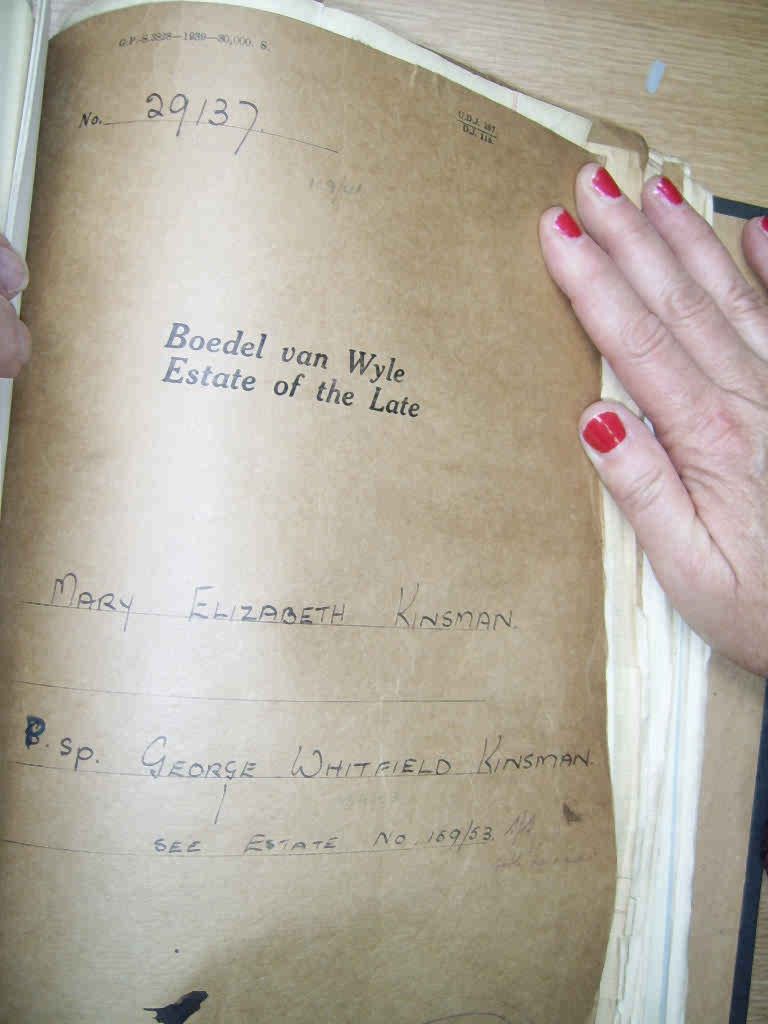 G.P.-S.3828—1939—30,000. S.
No. 29137.
U.D.J. 197
D.J. 118.
Boedel van Wyle
Estate of the Late
MARY ELIZABETH KINSMAN.
P. sp. GEORGE WHITFIELD KINSMAN.
SEE ESTATE NO. 159/53.